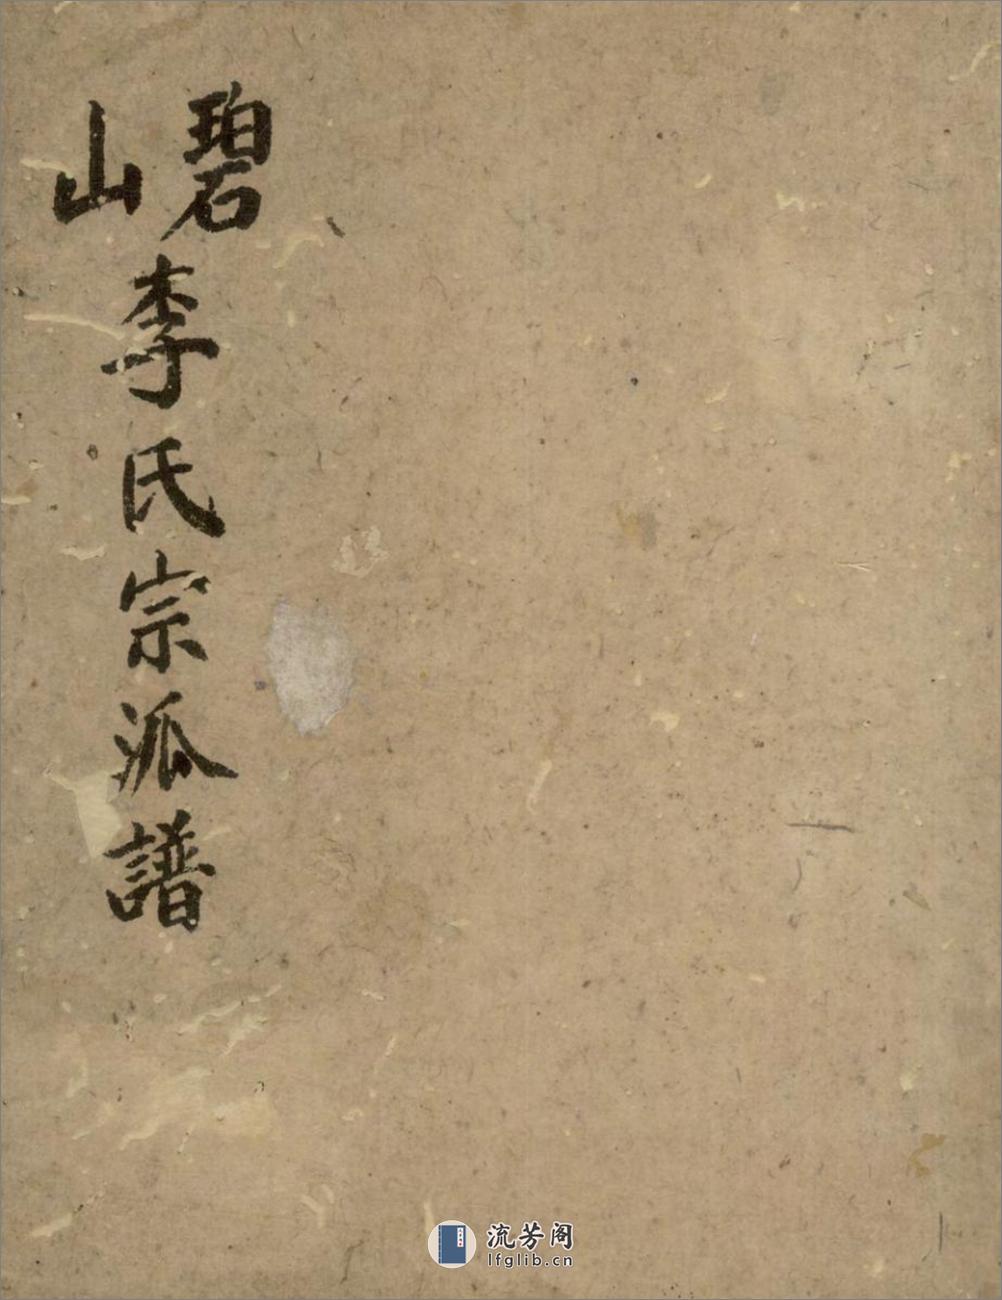 碧山李氏宗派譜
流芳阁
lfglib.cn